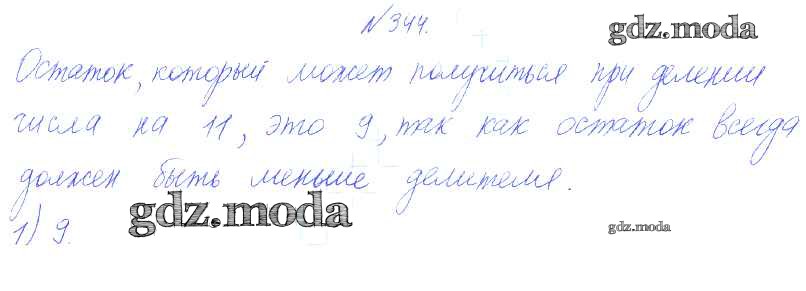 №344.
gdz.moda
Остаток, который может получиться при делении
числа на 11, это 9, так как остаток всегда
должен быть меньше делителя.
gdz.moda
1) 9.
gdz.moda